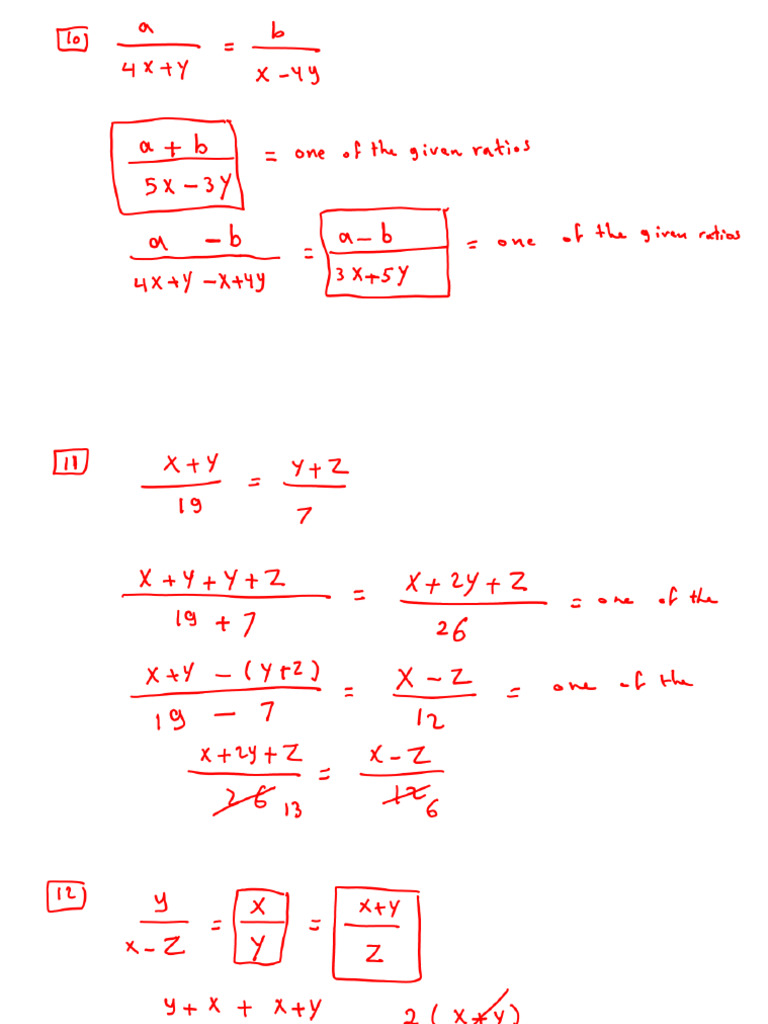 10 a/(4x+y) = b/(x-4y)
(a+b)/(5x-3y) = one of the given ratios
(a -b)/(4x+y-x+4y) = (a-b)/(3x+5y) = one of the given ratios
11 (x+y)/19 = (y+z)/7
(x+y+y+z)/(19+7) = (x+2y+z)/26 = one of the
(x+y-(y+z))/(19-7) = (x-z)/12 = one of the
(x+2y+z)/26 13 = (x-z)/12 6
12 y/(x-z) = x/y = (x+y)/z
y+x+x+y 2(x+y)